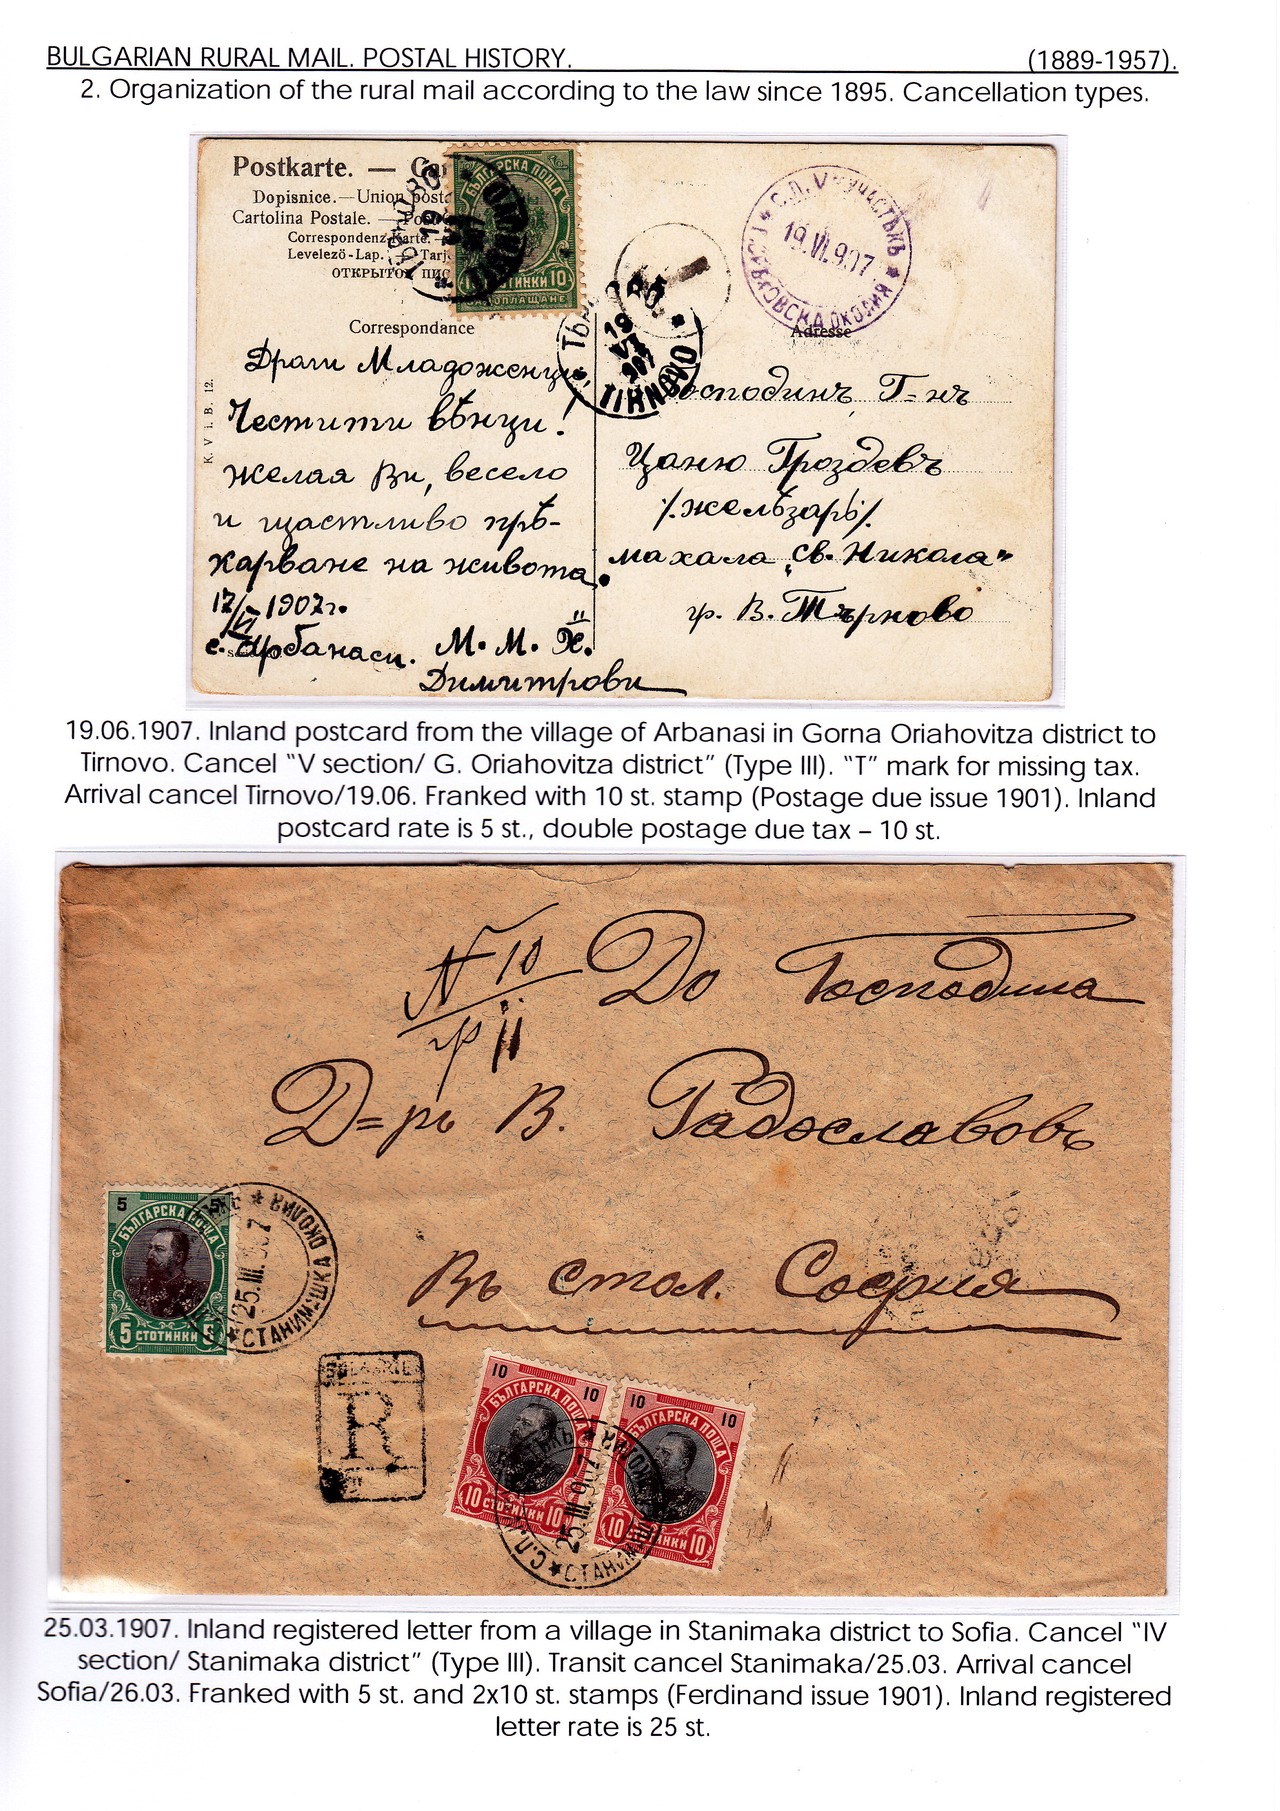 BULGARIAN RURAL MAIL. POSTAL HISTORY. (1889-1957).
2. Organization of the rural mail according to the law since 1895. Cancellation types.
Postkarte. —
Dopisnice. — Union
Cartolina Postale. —
Correspondenz-Karte. —
Levelező-Lap.
ОТКРЫТОЕ
БЪЛГАРСКА ПОЩА
10 СТОТИНКИ 10
ЗА ДОПЛАЩАНЕ
С.П. V УЧАСТЪКЪ
19.VI.907
ОКОЛИЯ
ТЪРНОВО
19
VI
907
TIRNOVO
Correspondance
Adresse
K. V i. B. 12.
Драги Младоженци
Честити вѣнци!
желая Ви, весело
и щастливо прѣ-
карване на живота.
17/VI 1907г.
с. Арбанаси. М. М. Х.
Димитрови
Господинъ, Г=нъ
Цаню Гроздевъ
/желѣзарь/
махала „Св. Никола"
гр. В. Търново
19.06.1907. Inland postcard from the village of Arbanasi in Gorna Oriahovitza district to
Tirnovo. Cancel "V section/ G. Oriahovitza district" (Type III). "T" mark for missing tax.
Arrival cancel Tirnovo/19.06. Franked with 10 st. stamp (Postage due issue 1901). Inland
postcard rate is 5 st., double postage due tax – 10 st.
N 10
гр 11
До Господина
Д=ръ В. Радославовъ
Въ стол. София
5 5
БЪЛГАРСКА ПОЩА
5 СТОТИНКИ 5
СТАНИМАШКА ОКОЛИЯ
25.III.907
BULGARIE
R
10 10
БЪЛГАРСКА ПОЩА
10 СТОТИНКИ 10
10 10
БЪЛГАРСКА ПОЩА
10 СТОТИНКИ 10
25.III.907
25.03.1907. Inland registered letter from a village in Stanimaka district to Sofia. Cancel "IV
section/ Stanimaka district" (Type III). Transit cancel Stanimaka/25.03. Arrival cancel
Sofia/26.03. Franked with 5 st. and 2x10 st. stamps (Ferdinand issue 1901). Inland registered
letter rate is 25 st.